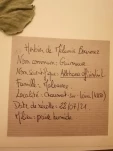 Herbier de Mélanie
Nom commun : Guimauve
Nom scientifique : Althaea officinalis
Famille : Malvacées
Localité : Chaumont-sur-Loire
Date de récolte : 22/07/21
Milieu : prairie humide